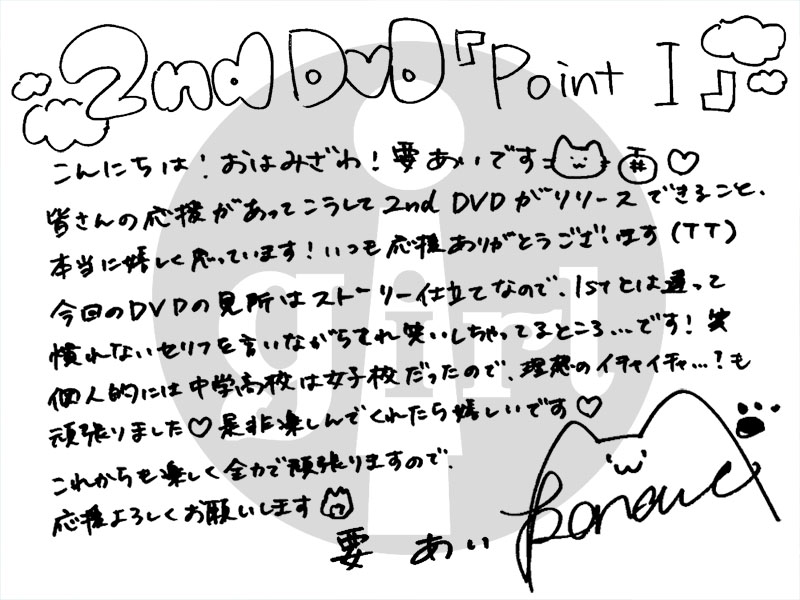 2nd DVD『Point I』
こんにちは！おはみざわ！要あいです
皆さんの応援があってこうして2nd DVDがリリースできること、
本当に嬉しく思っています！いつも応援ありがとうございます(TT)
今回のDVDの見所はストーリー仕立てなので、1stとは違って
慣れないセリフを言いながらてれ笑いしちゃってるところ…です！笑
個人的には中学高校は女子校だったので、理想のイチャイチャ…？も
頑張りました♡是非楽しんでくれたら嬉しいです♡
これからも楽しく全力で頑張りますので、
応援よろしくお願いします
要 あい
girl